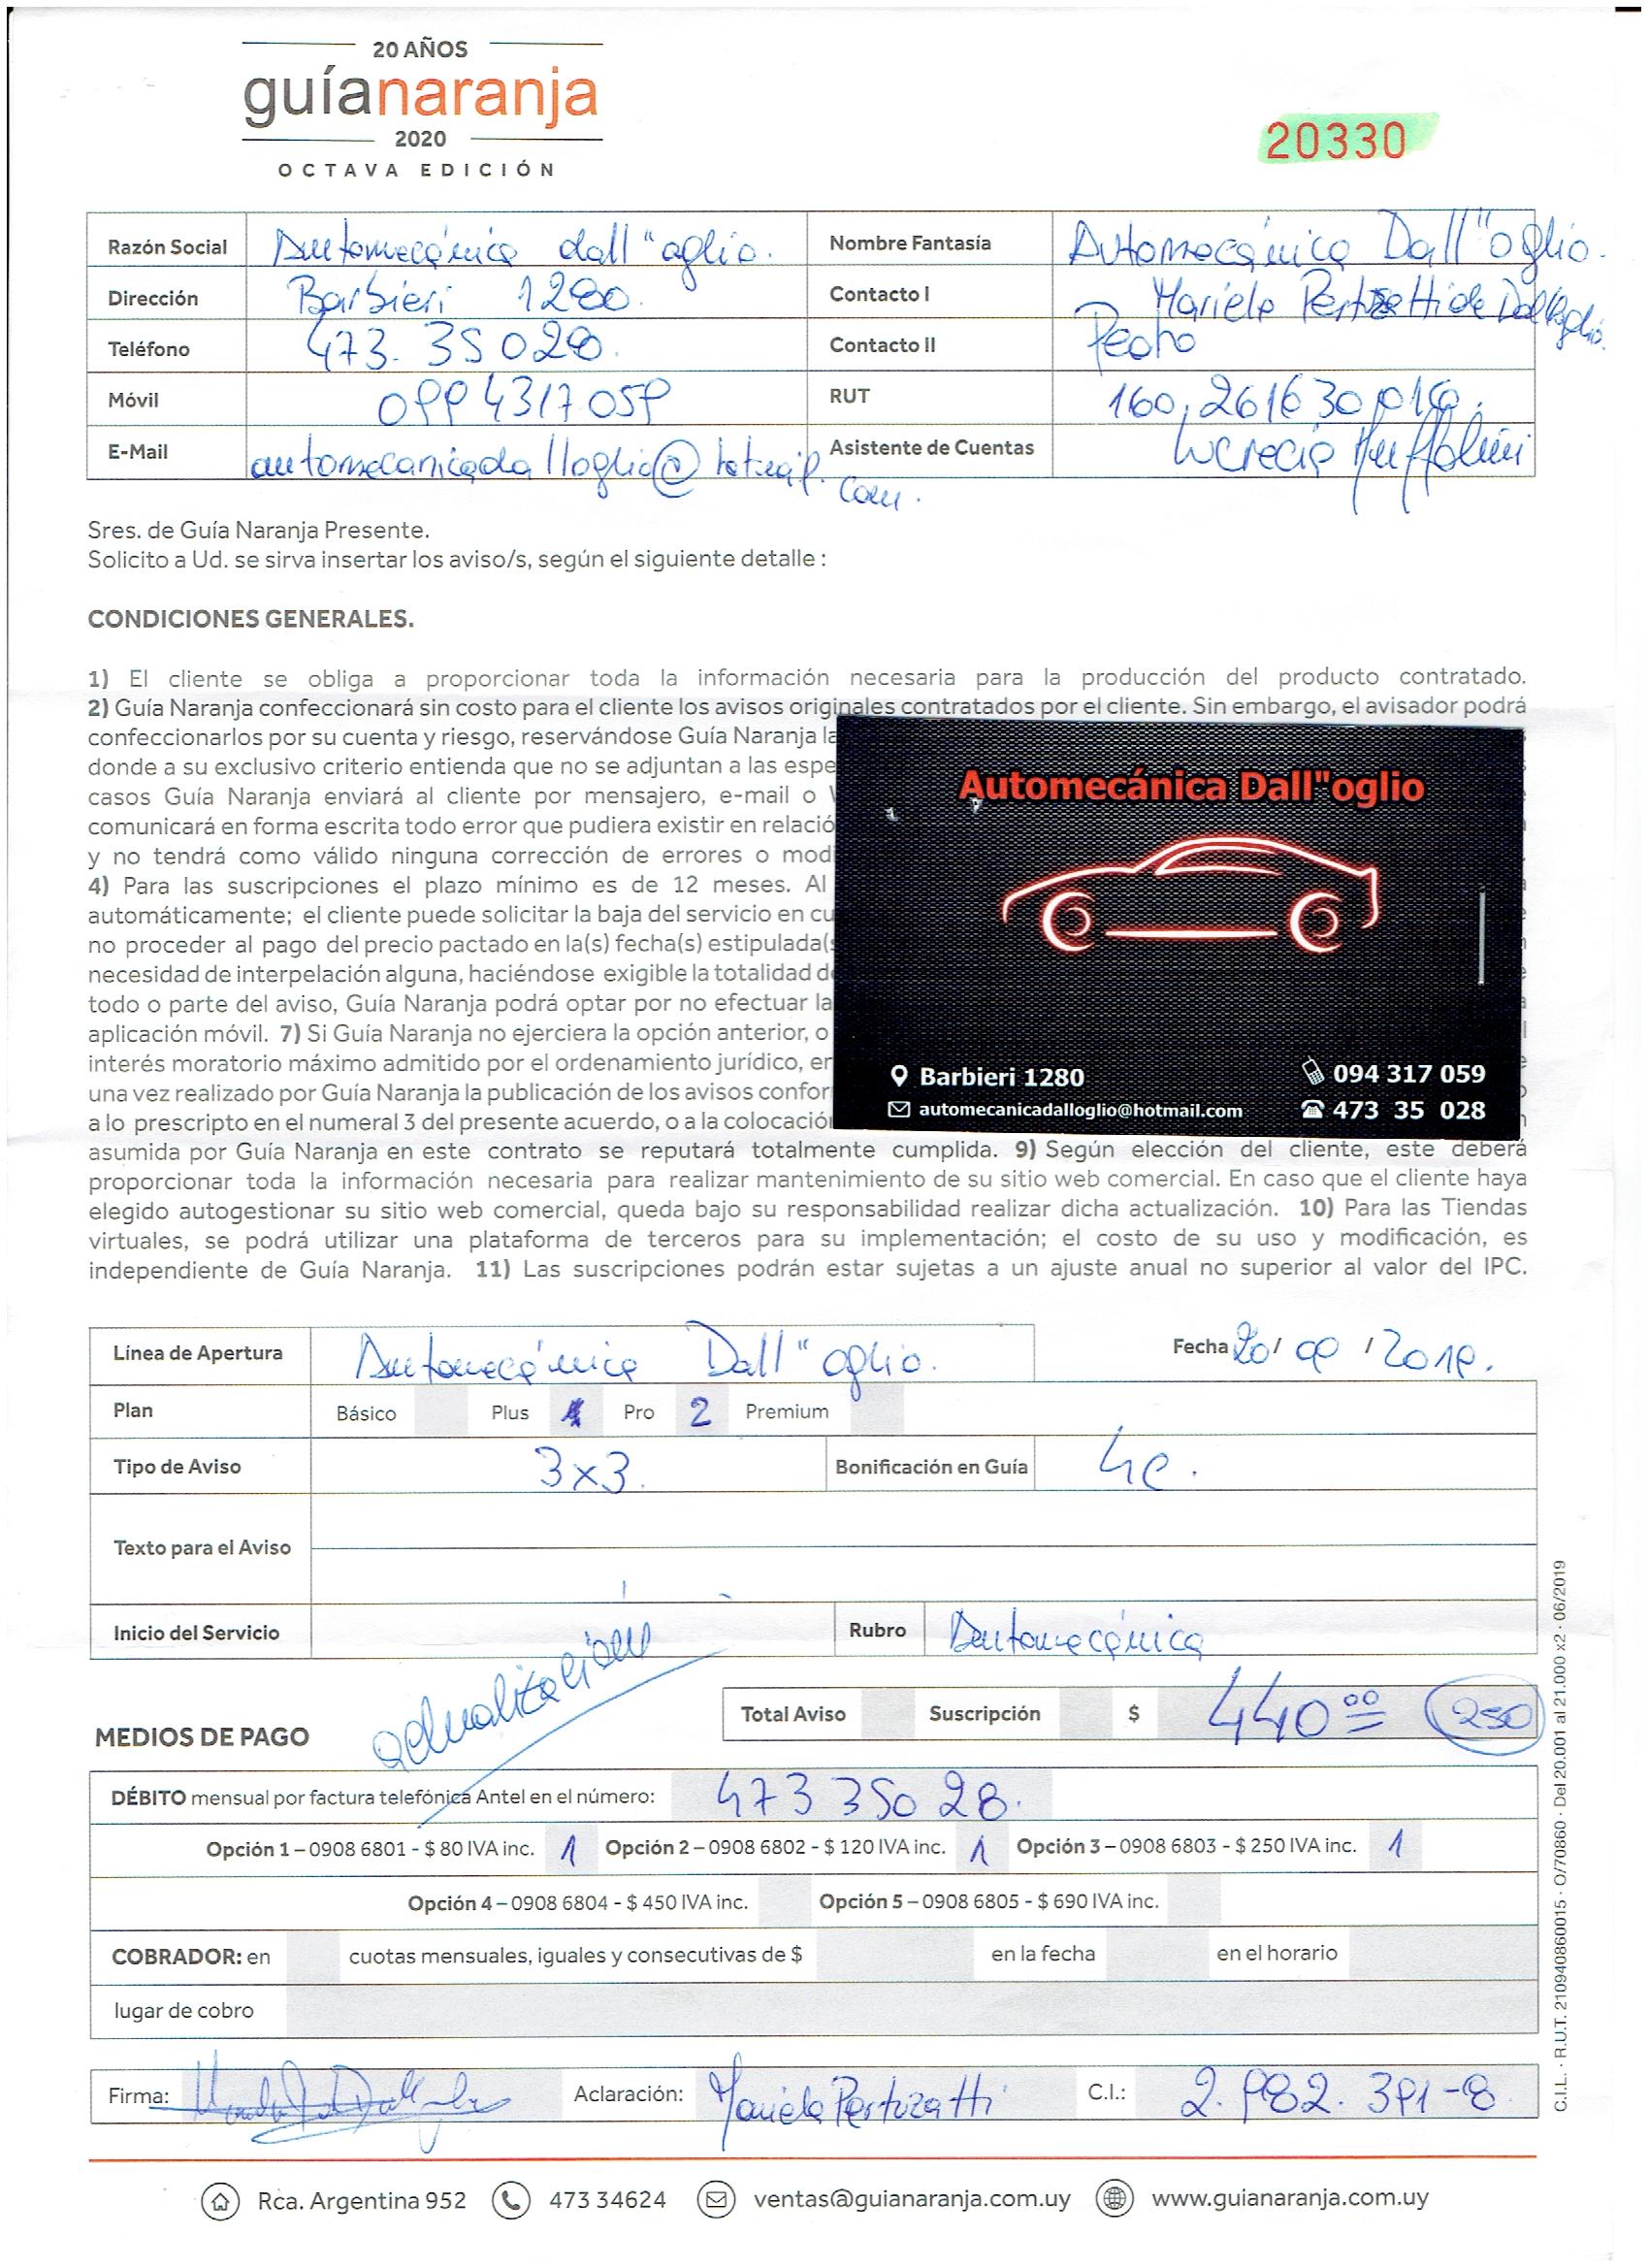 20 AÑOS
guíanaranja
2020
OCTAVA EDICIÓN
20330
Razón Social Automecánica dall"oglio. Nombre Fantasía Automecánica Dall"oglio.
Dirección Barbieri 1280. Contacto I Mariela Pertuzatti de Dall"oglio.
Teléfono 473. 35028. Contacto II Pedro
Móvil 094317059 RUT
E-Mail automecanicadalloglio@hotmail.com. Asistente de Cuentas Lucrecia
Sres. de Guía Naranja Presente.
Solicito a Ud. se sirva insertar los aviso/s, según el siguiente detalle :
CONDICIONES GENERALES.
1) El cliente se obliga a proporcionar toda la información necesaria para la producción del producto contratado.
2) Guía Naranja confeccionará sin costo para el cliente los avisos originales contratados por el cliente. Sin embargo, el avisador podrá
confeccionarlos por su cuenta y riesgo, reservándose Guía Naranja la
donde a su exclusivo criterio entienda que no se adjuntan a las espe
casos Guía Naranja enviará al cliente por mensajero, e-mail o
comunicará en forma escrita todo error que pudiera existir en relació
y no tendrá como válido ninguna corrección de errores o mod
4) Para las suscripciones el plazo mínimo es de 12 meses. Al
automáticamente; el cliente puede solicitar la baja del servicio en cu
no proceder al pago del precio pactado en la(s) fecha(s) estipulada(s
necesidad de interpelación alguna, haciéndose exigible la totalidad de
todo o parte del aviso, Guía Naranja podrá optar por no efectuar la
aplicación móvil. 7) Si Guía Naranja no ejerciera la opción anterior, o
interés moratorio máximo admitido por el ordenamiento jurídico, en
una vez realizado por Guía Naranja la publicación de los avisos confor
a lo prescripto en el numeral 3 del presente acuerdo, o a la colocación
Automecánica Dall"oglio
Barbieri 1280 094 317 059
automecanicadalloglio@hotmail.com 473 35 028
asumida por Guía Naranja en este contrato se reputará totalmente cumplida. 9) Según elección del cliente, este deberá
proporcionar toda la información necesaria para realizar mantenimiento de su sitio web comercial. En caso que el cliente haya
elegido autogestionar su sitio web comercial, queda bajo su responsabilidad realizar dicha actualización. 10) Para las Tiendas
virtuales, se podrá utilizar una plataforma de terceros para su implementación; el costo de su uso y modificación, es
independiente de Guía Naranja. 11) Las suscripciones podrán estar sujetas a un ajuste anual no superior al valor del IPC.
Línea de Apertura Automecánica Dall"oglio. Fecha 20/ 09 / 2019.
Plan Básico Plus Pro 2 Premium
Tipo de Aviso 3x3. Bonificación en Guía 4c.
Texto para el Aviso
Inicio del Servicio Rubro Automecánica
actualización
Total Aviso Suscripción $ 440 00 250
MEDIOS DE PAGO
DÉBITO mensual por factura telefónica Antel en el número: 473 35028.
Opción 1 – 0908 6801 - $ 80 IVA inc. 1 Opción 2 – 0908 6802 - $ 120 IVA inc. 1 Opción 3 – 0908 6803 - $ 250 IVA inc. 1
Opción 4 – 0908 6804 - $ 450 IVA inc. Opción 5 – 0908 6805 - $ 690 IVA inc.
COBRADOR: en cuotas mensuales, iguales y consecutivas de $ en la fecha en el horario
lugar de cobro
Firma: Aclaración: Mariela Pertuzatti C.I.: 2.982.391-8
C.I.L. · R.U.T. 210940860015 · O/70860 · Del 20.001 al 21.000 x2 · 06/2019
Rca. Argentina 952 473 34624 ventas@guianaranja.com.uy www.guianaranja.com.uy